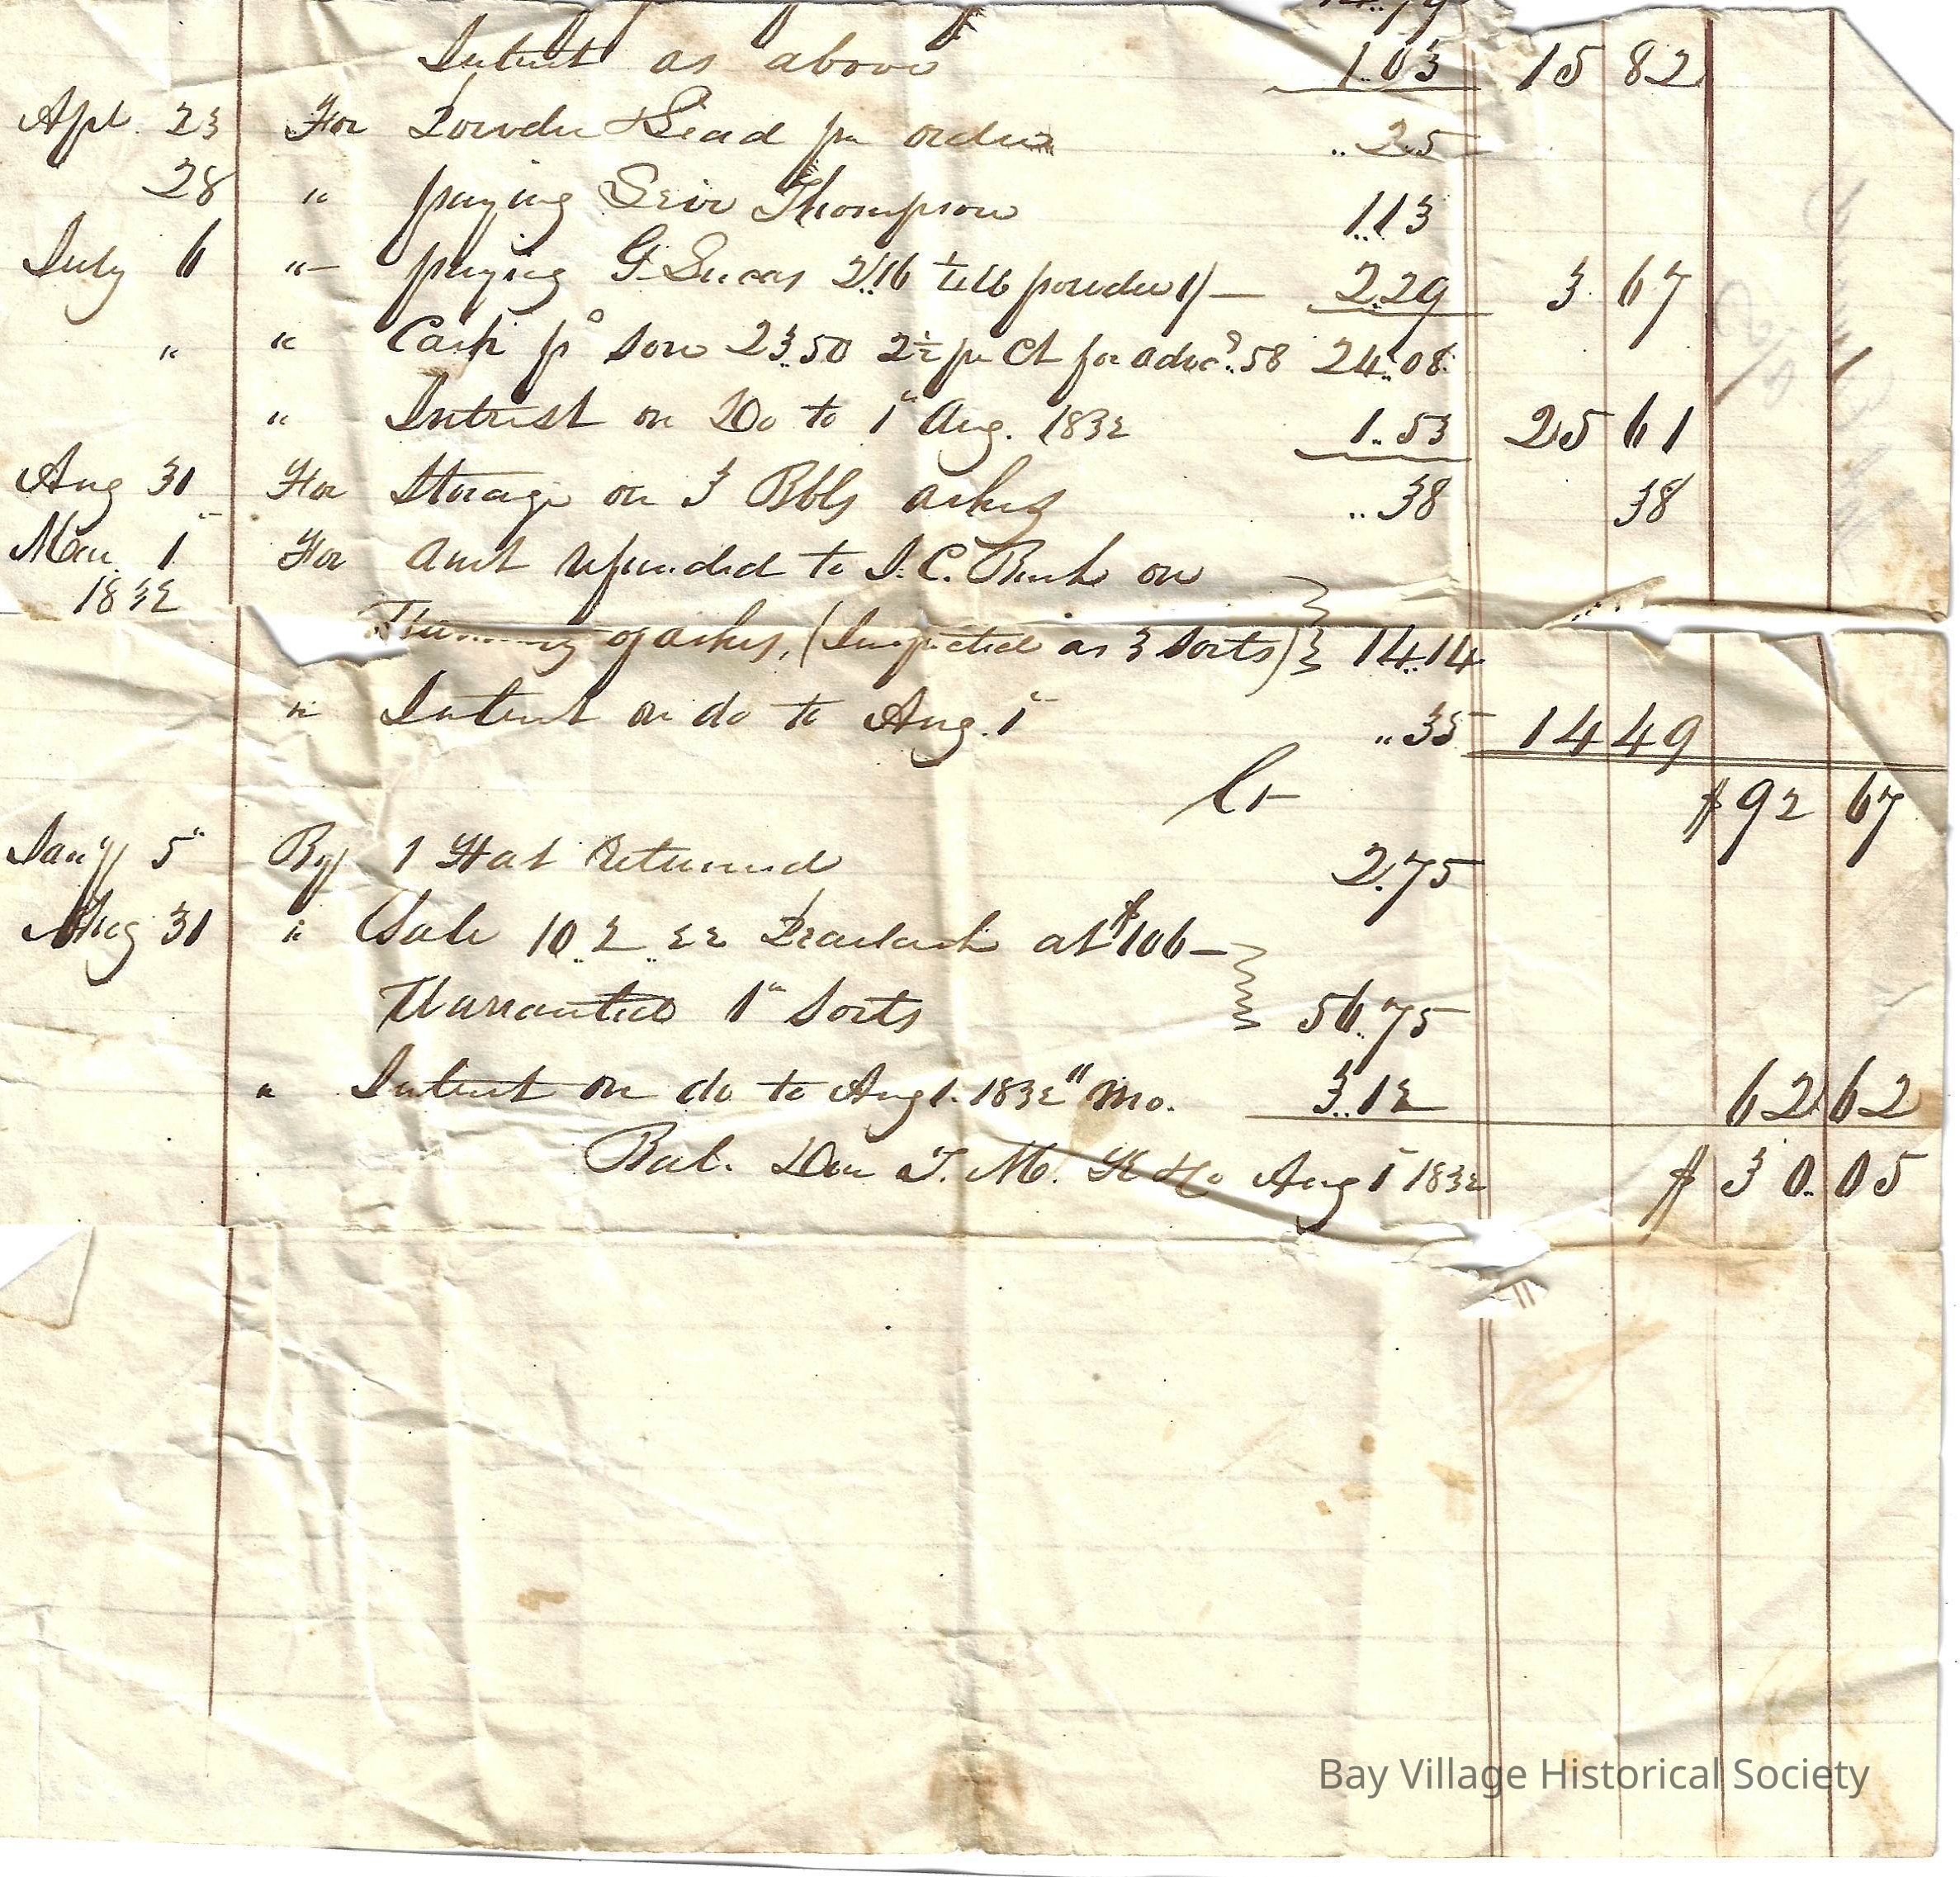 14.79
Interest as above 1.03 15 82
Apl. 23 For Powder & Lead pr order ..25
28 " paying Levi Thompson 1.13
July 6 " paying G. Lucas 2.16 powder 2.29 3 67
" " Cash pr son 23.50 2½ pr Ct for advce .58 24.08
" Intrest on Do to 1" Aug. 1832 1..53 25 61
Aug 31 For Storage on 3 Bbls ashes ..38 38
Mar. 1 For Amt refunded to I. C. on
1832
of ashes, (Inspected as 3 Sorts) 14.14
" Interest on do to Aug. 1" ..35 14 49
Cr $92 67
Jany 5" By 1 Hat Returned 2.75
Aug 31 " Sale 10..2..22 Pearlash at $106-
Warranted 1" Sorts 56.75
" Interest on do to Aug 1. 1832 11 Mo. 3..12 62 62
Bal. Due T. M. K & Co Aug 1" 1832 $ 30.05
Bay Village Historical Society